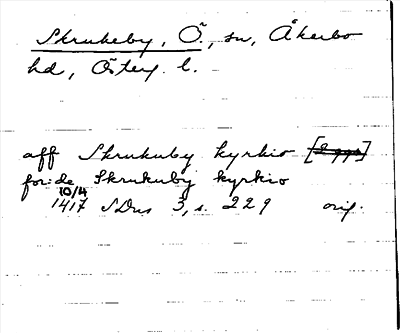 Skrukeby, Ö., sn, Åkerbo
hd, Österg. l.
aff Skrukuby kyrkio
for:de Skrukuby kyrkio
10/4
1417 SDns 3, s. 229 orig.